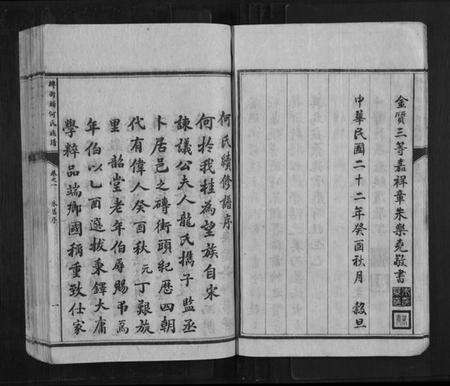 金質三等嘉祥章朱樂堯敬書
中華民國二十二年癸酉秋月 穀旦
何氏續修譜序
何於我桂為望族自宋
諫議公夫人龍氏攜子監丞
卜居邑之磚街頭紀歷四朝
代有偉人癸酉秋元丁艱旋
里韶堂老年伯辱賜吊焉
年伯以乙酉選拔秉鐸大庸
學粹品端鄉國稱重致仕家
何氏族譜
卷之一
一